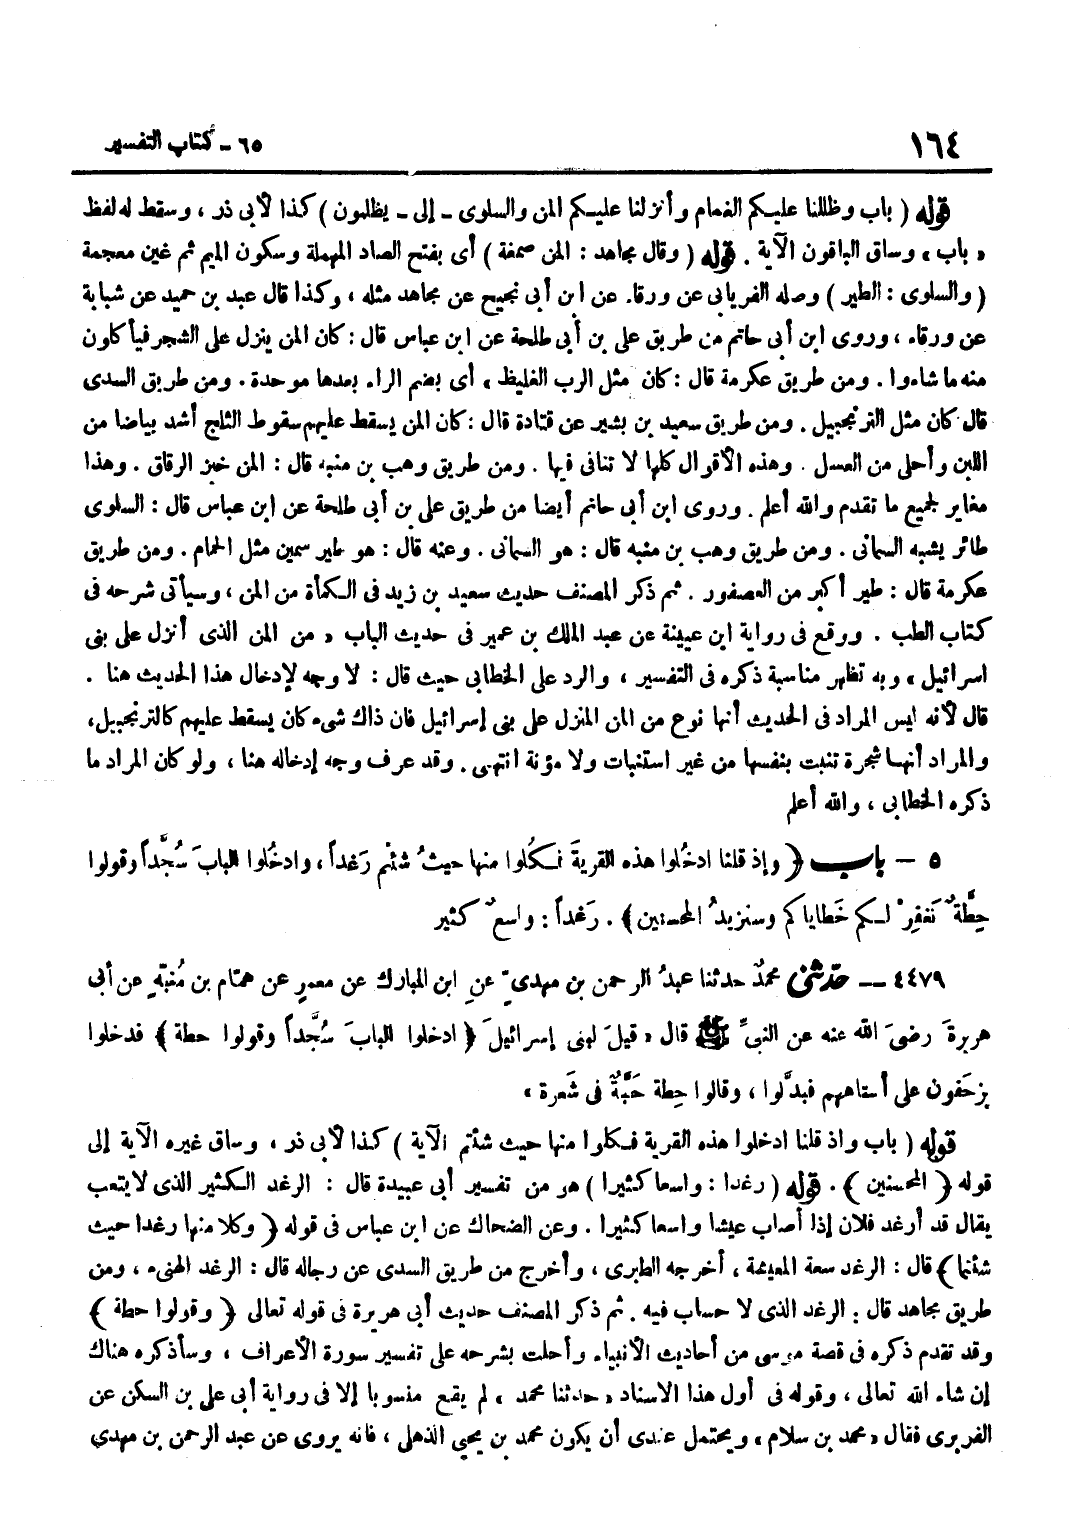 ١٦٤
٦٥ - كتاب التفسير
قوله ( باب وظللنا عليكم الغمام وأنزلنا عليكم المن والسلوى - إلى - يظلمون ) كذا لأبى ذر ، وسقط له لفظ
« باب » وساق الباقون الآية . قوله ( وقال مجاهد : المن صمغة ) أى بفتح الصاد المهملة وسكون الميم ثم غين معجمة
( والسلوى : الطير ) وصله الفريابى عن ورقاء عن ابن أبى نجيح عن مجاهد مثله ، وكذا قال عبد بن حميد عن شبابة
عن ورقاء ، وروى ابن أبى حاتم من طريق على بن أبى طلحة عن ابن عباس قال : كان المن ينزل على الشجر فيأكلون
منه ما شاءوا . ومن طريق عكرمة قال : كان مثل الرب الغليظ ، أى بضم الراء بعدها موحدة . ومن طريق السدى
قال كان مثل الترنجبيل . ومن طريق سعيد بن بشير عن قتادة قال : كان المن يسقط عليهم سقوط الثلج أشد بياضا من
اللبن وأحلى من العسل . وهذه الأقوال كلها لا تنافى فيها . ومن طريق وهب بن منبه قال : المن خبز الرقاق . وهذا
مغاير لجميع ما تقدم والله أعلم . وروى ابن أبى حاتم أيضا من طريق على بن أبى طلحة عن ابن عباس قال : السلوى
طائر يشبه السمانى . ومن طريق وهب بن منبه قال : هو السمانى . وعنه قال : هو طير سمين مثل الحمام . ومن طريق
عكرمة قال : طير أكبر من العصفور . ثم ذكر المصنف حديث سعيد بن زيد فى الكمأة من المن ، وسيأتى شرحه فى
كتاب الطب . ووقع فى رواية ابن عيينة عن عبد الملك بن عمير فى حديث الباب « من المن الذى أنزل على بنى
اسرائيل » وبه تظهر مناسبة ذكره فى التفسير ، والرد على الخطابى حيث قال : لا وجه لإدخال هذا الحديث هنا .
قال لأنه ليس المراد فى الحديث أنها نوع من المن المنزل على بنى إسرائيل فان ذاك شىء كان يسقط عليهم كالترنجبيل ،
والمراد أنها شجرة تنبت بنفسها من غير استنبات ولا مؤنة انتهى . وقد عرف وجه إدخاله هنا ، ولو كان المراد ما
ذكره الخطابى ، والله أعلم
٥ - باب ﴿ وإذ قلنا ادخُلوا هذه القريةَ فكُلوا منها حيثُ شئتم رَغَداً ، وادخُلوا البابَ سُجَّداً وقولوا
حِطَّةٌ نَغفِرْ لكم خَطاياكم وسنزيدُ المحسنين ﴾ . رَغَداً : واسعٌ كثير
٤٤٧٩ - حدّثنى محمدٌ حدثنا عبدُ الرحمن بن مهدىّ عنِ ابن المبارك عن معمرٍ عن همّام بن مُنبّهٍ عن أبى
هريرةَ رضىَ الله عنه عن النبىِّ ﷺ قال « قيلَ لبنى إسرائيلَ ﴿ ادخلوا البابَ سُجَّداً وقولوا حطة ﴾ فدخلوا
يزحَفون على أستاههم فبدَّلوا ، وقالوا حِطة حَبَّةٌ فى شَعرة »
قوله ( باب واذ قلنا ادخلوا هذه القرية فكلوا منها حيث شئتم الآية ) كذا لأبى ذر ، وساق غيره الآية إلى
قوله ﴿ المحسنين ﴾ . قوله ( رغدا : واسعا كثيرا ) هو من تفسير أبى عبيدة قال : الرغد الكثير الذى لا يتعب
يقال قد أرغد فلان إذا أصاب عيشا واسعا كثيرا . وعن الضحاك عن ابن عباس فى قوله ﴿ وكلا منها رغدا حيث
شئتما ﴾ قال : الرغد سعة المعيشة ، أخرجه الطبرى ، وأخرج من طريق السدى عن رجاله قال : الرغد الهنىء ، ومن
طريق مجاهد قال : الرغد الذى لا حساب فيه . ثم ذكر المصنف حديث أبى هريرة فى قوله تعالى ﴿ وقولوا حطة ﴾
وقد تقدم ذكره فى قصة موسى من أحاديث الأنبياء وأحلت بشرحه على تفسير سورة الأعراف ، وسأذكره هناك
إن شاء الله تعالى ، وقوله فى أول هذا الاسناد « حدثنا محمد » لم يقع منسوبا إلا فى رواية أبى على بن السكن عن
الفربرى فقال « محمد بن سلام » ويحتمل عندى أن يكون محمد بن يحيى الذهلى ، فانه يروى عن عبد الرحمن بن مهدي